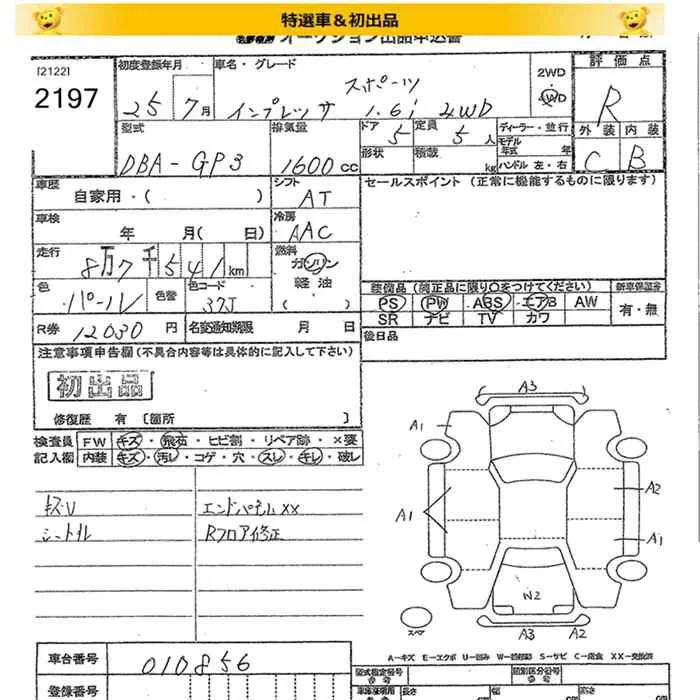 特選車＆初出品
オークション出品申込書
[2122]
2197
初度登録年月
25 7月
車名・グレード
スポーツ
インプレッサ 1.6i 4WD
2WD
4WD
評価点
R
外装 内装
C B
型式
DBA-GP3
排気量
1600cc
ドア 5
定員 5人
形状
積載 kg
ディーラー・並行
モデル年式 年
ハンドル 左・右
車歴
自家用・( )
シフト
AT
セールスポイント（正常に機能するものに限ります）
車検
年 月(日)
冷房
AAC
走行
8万7千541km
燃料
ガソリン
軽油
( )
色
パール
色替
色コード
37J
装備品（純正品に限り○をつけてください）
PS PW ABS エアB AW
SR ナビ TV カワ
新車保証書
有・無
R券 12030円
名変通知期限 月 日
後日品
注意事項申告欄（不具合内容等は具体的に記入して下さい）
初出品
修復歴 有〔箇所 〕
検査員記入欄
FW キズ・飛石・ヒビ割・リペア跡・×要
内装 キズ・汚レ・コゲ・穴・スレ・キレ・破レ
キズU
シートキレ
エンドパネルXX
Rフロア修正
A3
A1
A1
A2
A1
W2
A3 A2
スペア
A−キズ E−エクボ U−凹み S−サビ C−腐食 XX−交換済
車台番号
010856
登録番号
型式指定番号
類別区分番号
長さ
幅
高さ